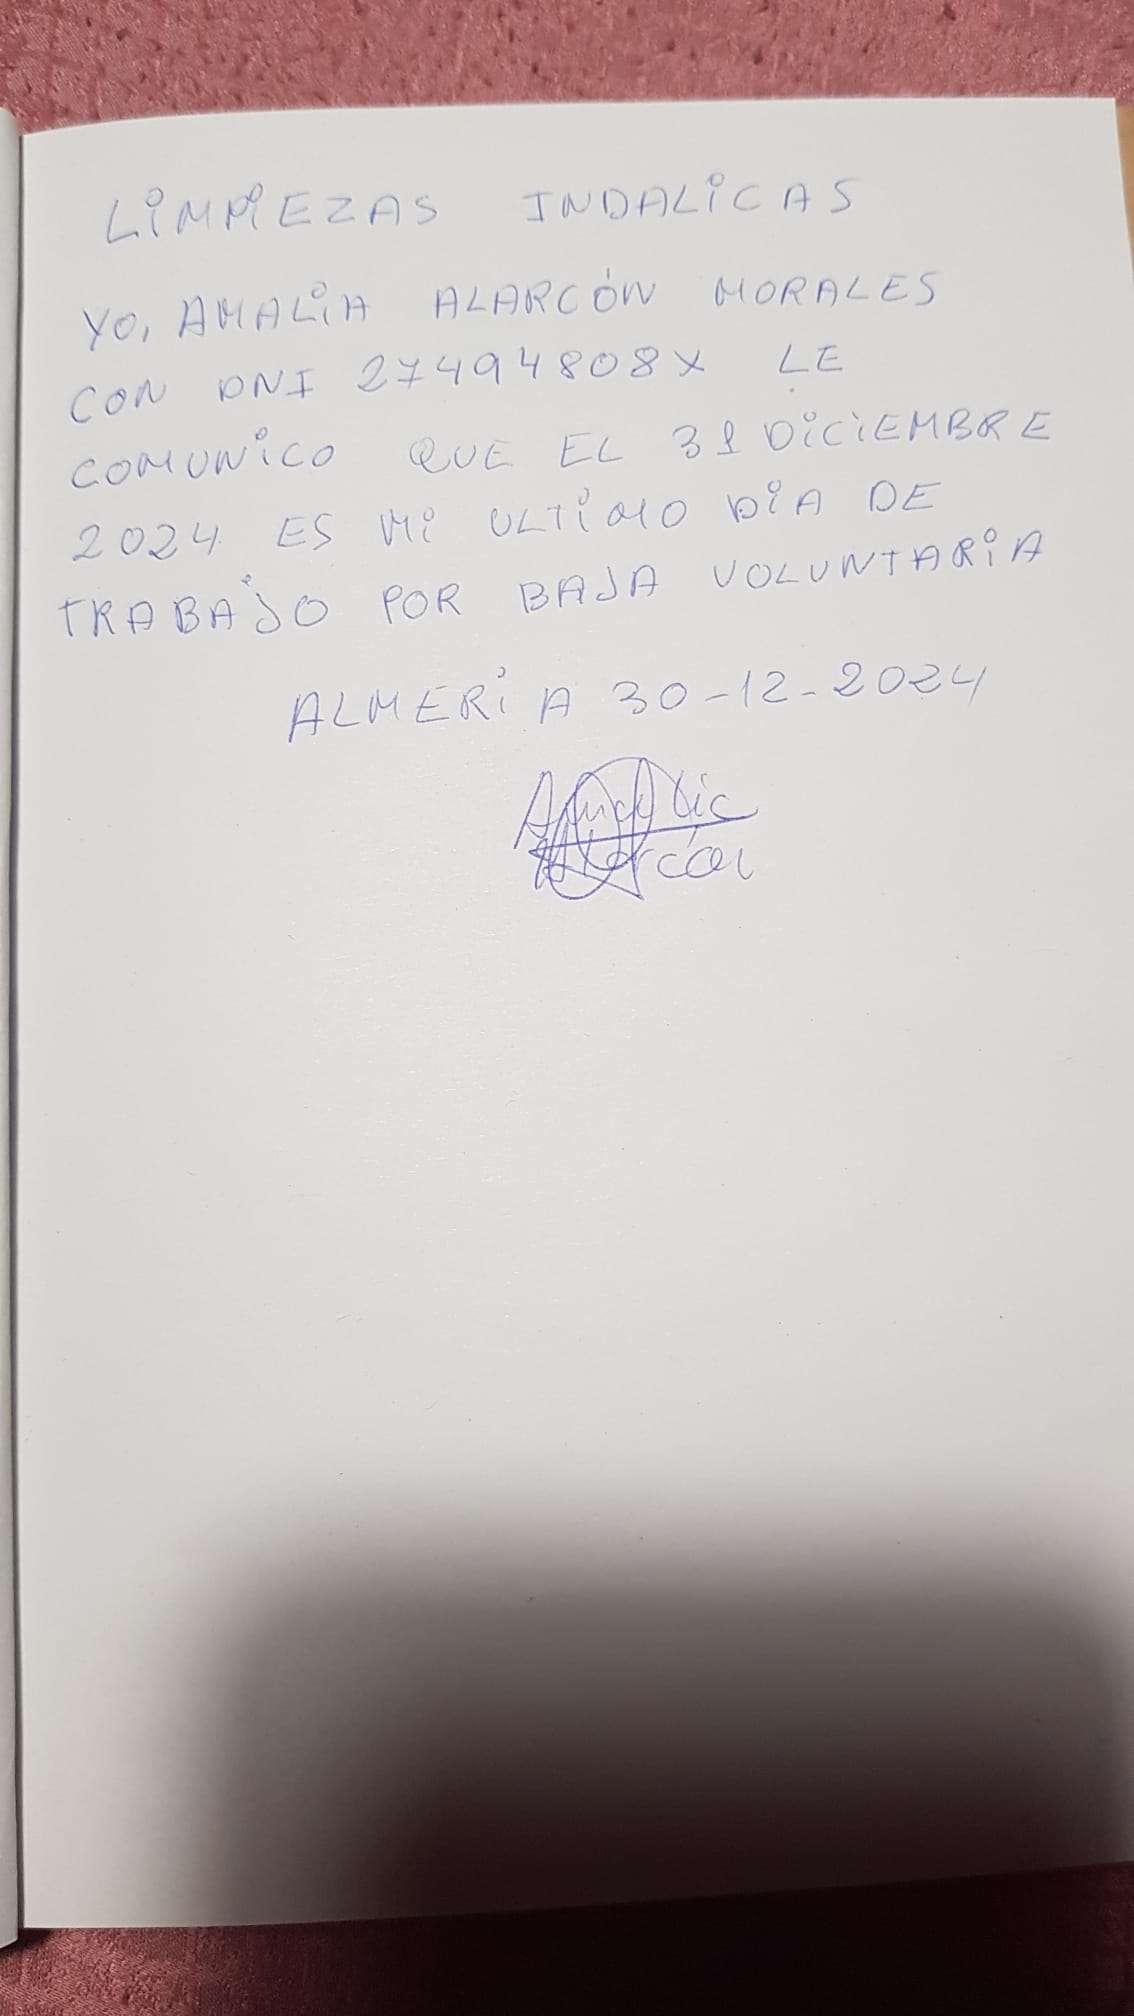 LIMPIEZAS INDALICAS
YO, AMALIA ALARCÓN MORALES
CON DNI 27494808X LE
COMUNICO QUE EL 31 DICIEMBRE
2024 ES MI ULTIMO DIA DE
TRABAJO POR BAJA VOLUNTARIA
ALMERIA 30-12-2024
Amalia
Alarcón